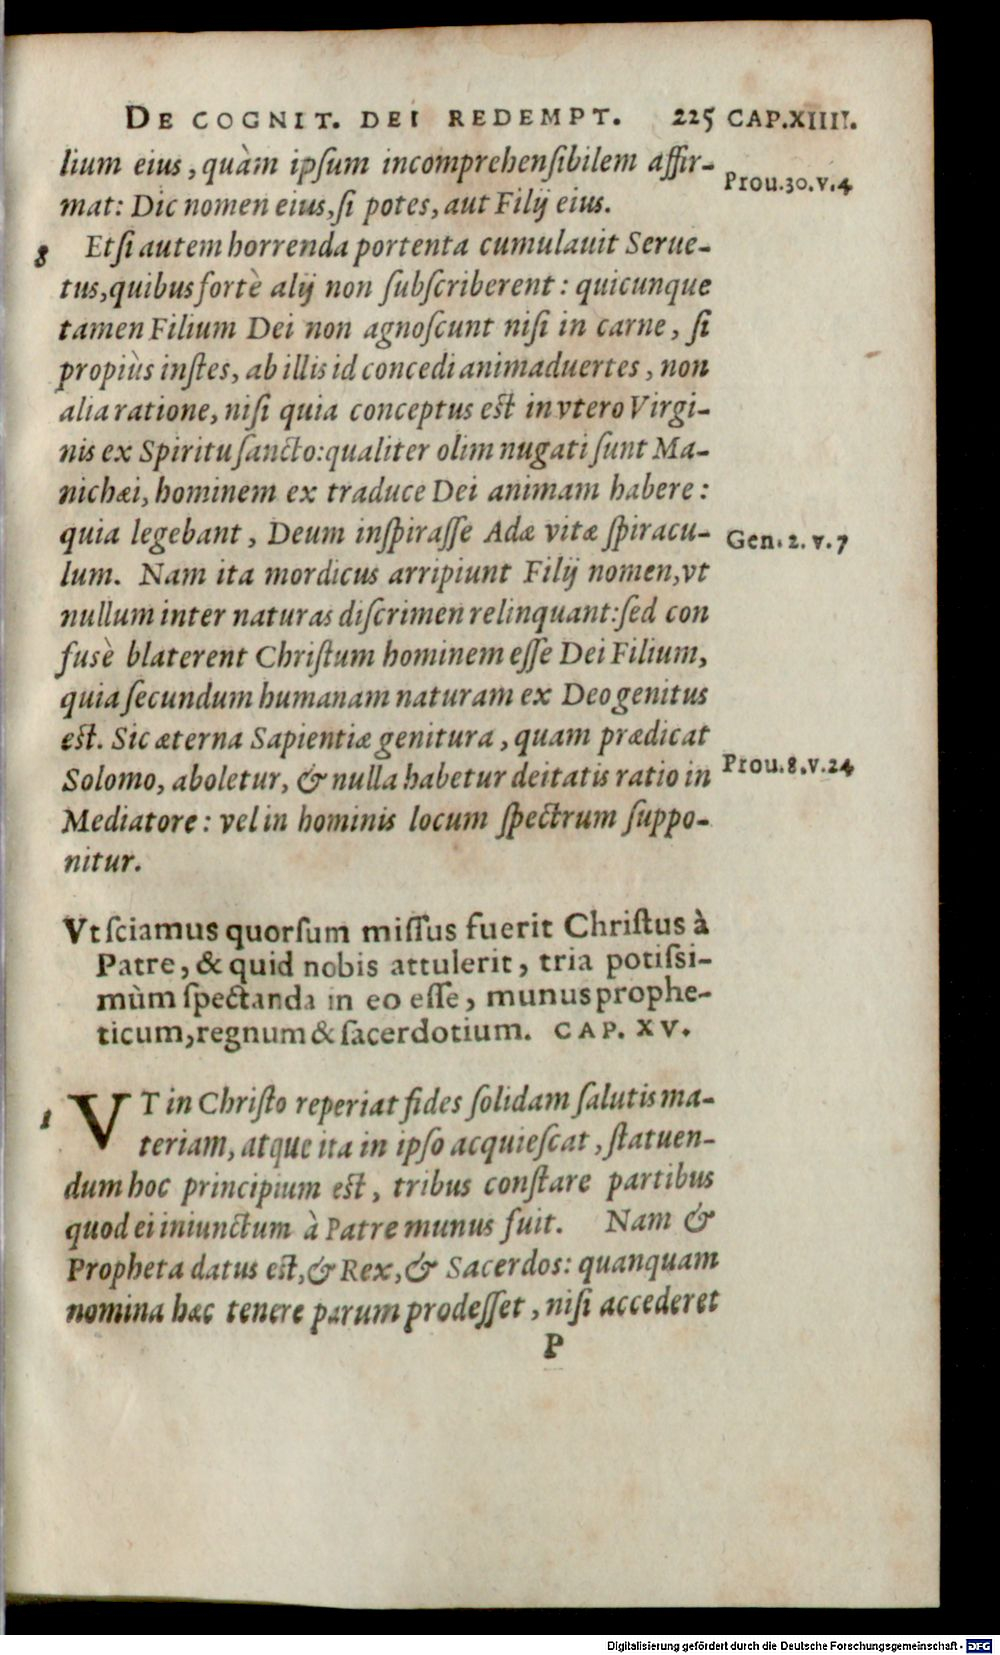 DE COGNIT. DEI REDEMPT. 225 CAP.XIIII.
lium eius, quàm ipſum incomprehenſibilem affir-
Prou.30.v.4
mat: Dic nomen eius, ſi potes, aut Filij eius.
8 Etſi autem horrenda portenta cumulauit Serue-
tus, quibus fortè alij non ſubſcriberent: quicunque
tamen Filium Dei non agnoſcunt niſi in carne, ſi
propiùs inſtes, ab illis id concedi animaduertes, non
alia ratione, niſi quia conceptus est in vtero Virgi-
nis ex Spiritu ſancto: qualiter olim nugati ſunt Ma-
nichæi, hominem ex traduce Dei animam habere:
quia legebant, Deum inſpiraſſe Adæ vitæ ſpiracu-
Gen. 2. v. 7
lum. Nam ita mordicus arripiunt Filij nomen, vt
nullum inter naturas diſcrimen relinquant: ſed con
fusè blaterent Chriſtum hominem eſſe Dei Filium,
quia ſecundum humanam naturam ex Deo genitus
est. Sic æterna Sapientiæ genitura, quam prædicat
Prou.8.v.24
Solomo, aboletur, & nulla habetur deitatis ratio in
Mediatore: vel in hominis locum ſpectrum ſuppo-
nitur.
Vt ſciamus quorſum miſſus fuerit Chriſtus à
Patre, & quid nobis attulerit, tria potiſsi-
mùm ſpectanda in eo eſſe, munus prophe-
ticum, regnum & ſacerdotium. CAP. XV.
1 VT in Chriſto reperiat fides ſolidam ſalutis ma-
teriam, atque ita in ipſo acquieſcat, ſtatuen-
dum hoc principium est, tribus conſtare partibus
quod ei iniunctum à Patre munus fuit. Nam &
Propheta datus est, & Rex, & Sacerdos: quanquam
nomina hæc tenere parum prodeſſet, niſi accederet
P
Digitalisierung gefördert durch die Deutsche Forschungsgemeinschaft - DFG